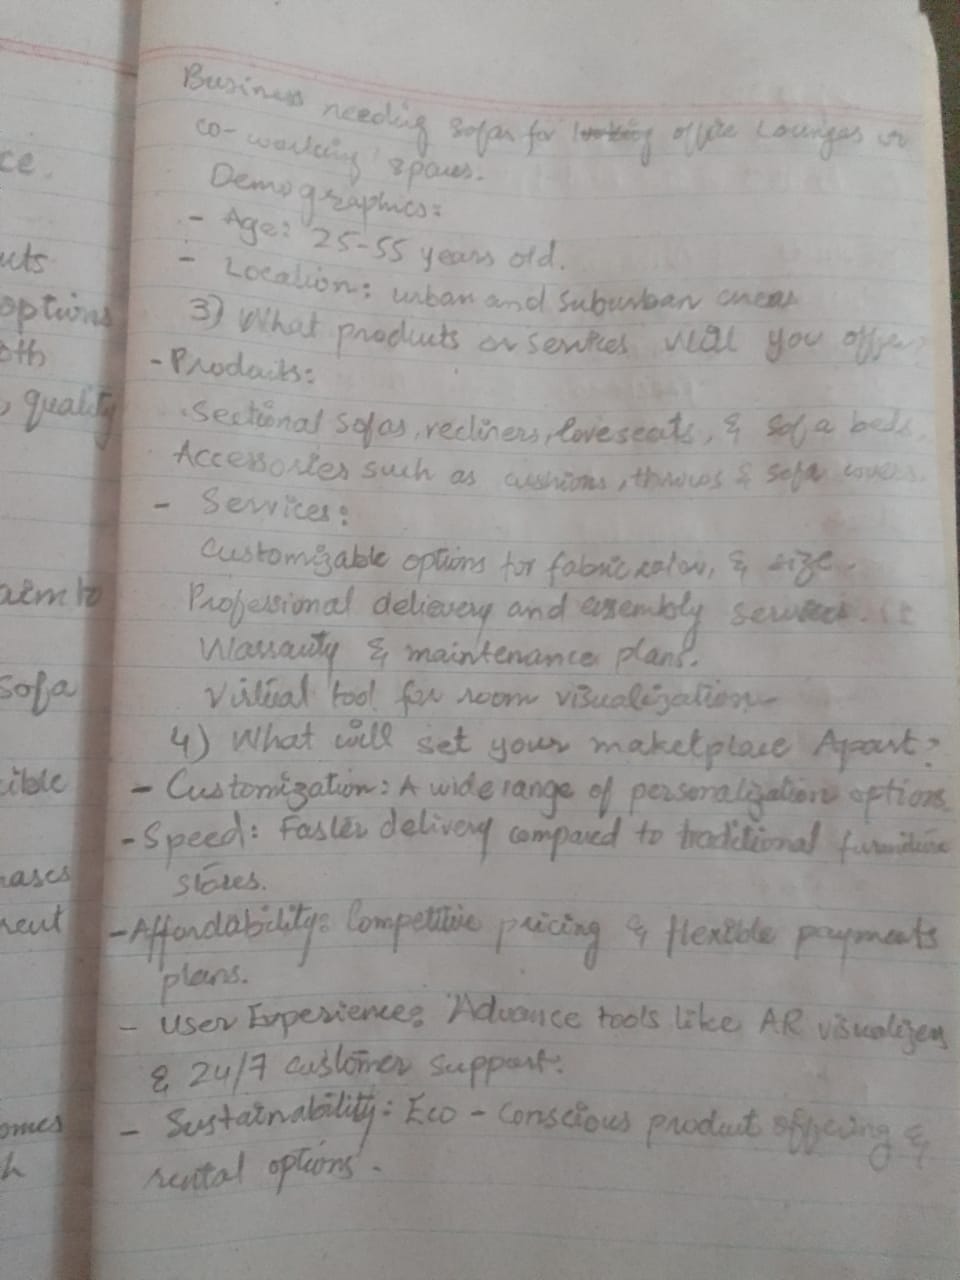 ce.
ucts
options
oth
, quality
aim to
sofa
cible
hases
rent
omes
h
Business needing sofas for looking office lounges or
co-working spaces.
Demographics:
- Age: 25-55 years old.
- Location: urban and suburban areas
3) What products or services will you offer?
- Products:
.Sectional sofas, recliners, loveseats, & sofa beds.
Accessories such as cushions, throws & sofa covers.
- Services:
Customizable options for fabric, color, & size.
Professional delievery and assembly services.
Warranty & maintenance plans.
Virtual tool for room visualization
4) What will set your maketplace Apart?
- Customization: A wide range of personalization options
- Speed: Faster delivery compared to traditional furniture
stores.
- Affordability: Competitive pricing & flexible payments
plans.
- User Experience: Advance tools like AR visualizers
& 24/7 customer support.
- Sustainability: Eco - Conscious product offering &
rental options.